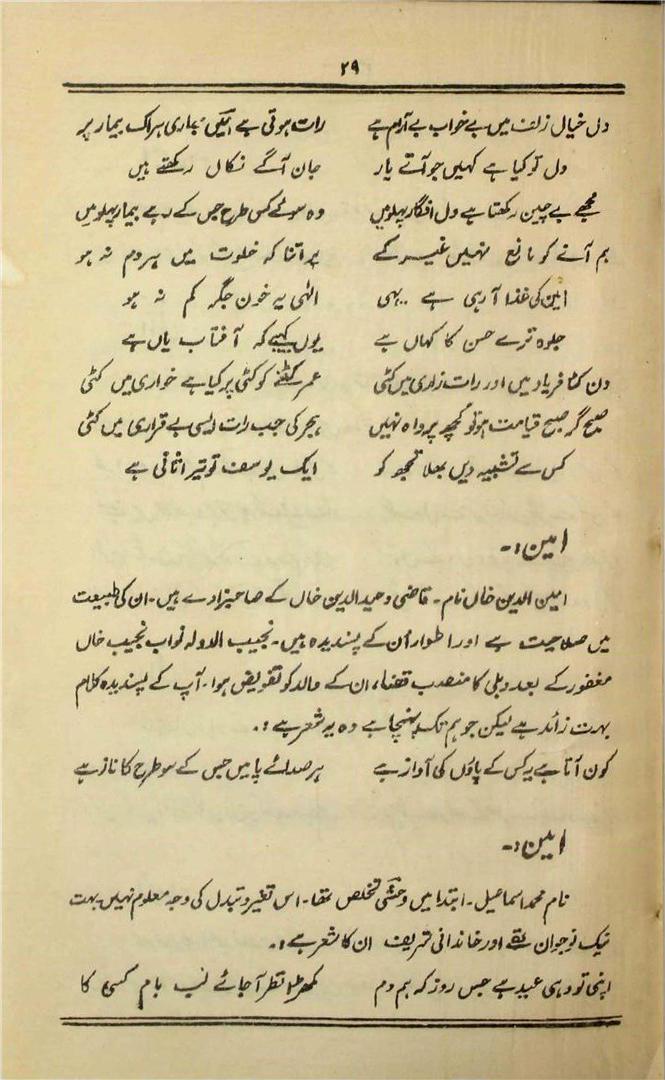 ۲۹
دل خیال زلف میں بے خواب بے آرام ہے رات ہوتی ہے امیں بھاری ہر اک بیمار پر
دل تو کیا ہے کہیں جو آتے یار جان آگے نکال رکھتے ہیں
مجھے بے چین رکھتا ہے دل افگار پہلو میں وہ سوئے کس طرح جس کے رہے بیمار پہلو میں
ہم آنے کو مانع نہیں غیر کے پر اتنا کہ خلوت میں ہر دم نہ ہو
امین کی غذا آ رہی ہے یہی الٰہی یہ خون جگر کم نہ ہو
جلوہ ترے حسن کا کہاں ہے یوں کہیے کہ آفتاب یاں ہے
دن کٹا فریاد میں اور رات زاری میں کٹی عمر کٹنے کو کٹی پر کیا ہے خواری میں کٹی
صبح گر صبح قیامت ہو تو کچھ پرواہ نہیں ہجر کی جب رات ایسی بے قراری میں کٹی
کس سے تشبیہ دیں بھلا تجھ کو ایک یوسف تو تیرا ثانی ہے
امین :-
امین الدین خاں نام۔ قاضی وحید الدین خاں کے صاحبزادے ہیں۔ ان کی طبیعت
میں صلاحیت ہے اور اطوار اُن کے پسندیدہ ہیں۔ نجیب الدولہ نواب نجیب خاں
مغفور کے بعد دہلی کا منصب قضا، ان کے والد کو تفویض ہوا۔ آپ کے پسندیدہ کلام
بہت زائد ہے لیکن جو ہم تک پہنچا ہے وہ یہ شعر ہے :۔
کون آتا ہے یہ کس کے پاؤں کی آواز ہے ہر صدائے پا میں جس کے سو طرح کا ناز ہے
امین :-
نام محمد اسماعیل۔ ابتدا میں وحشی تخلص تھا۔ اس تغیر و تبدل کی وجہ معلوم نہیں۔ بہت
نیک نوجوان تھے اور خاندانی شریف ان کا شعر ہے :۔
اپنی تو وہی عید ہے جس روز کہ ہم دم مکھڑا نظر آ جائے لب بام کسی کا